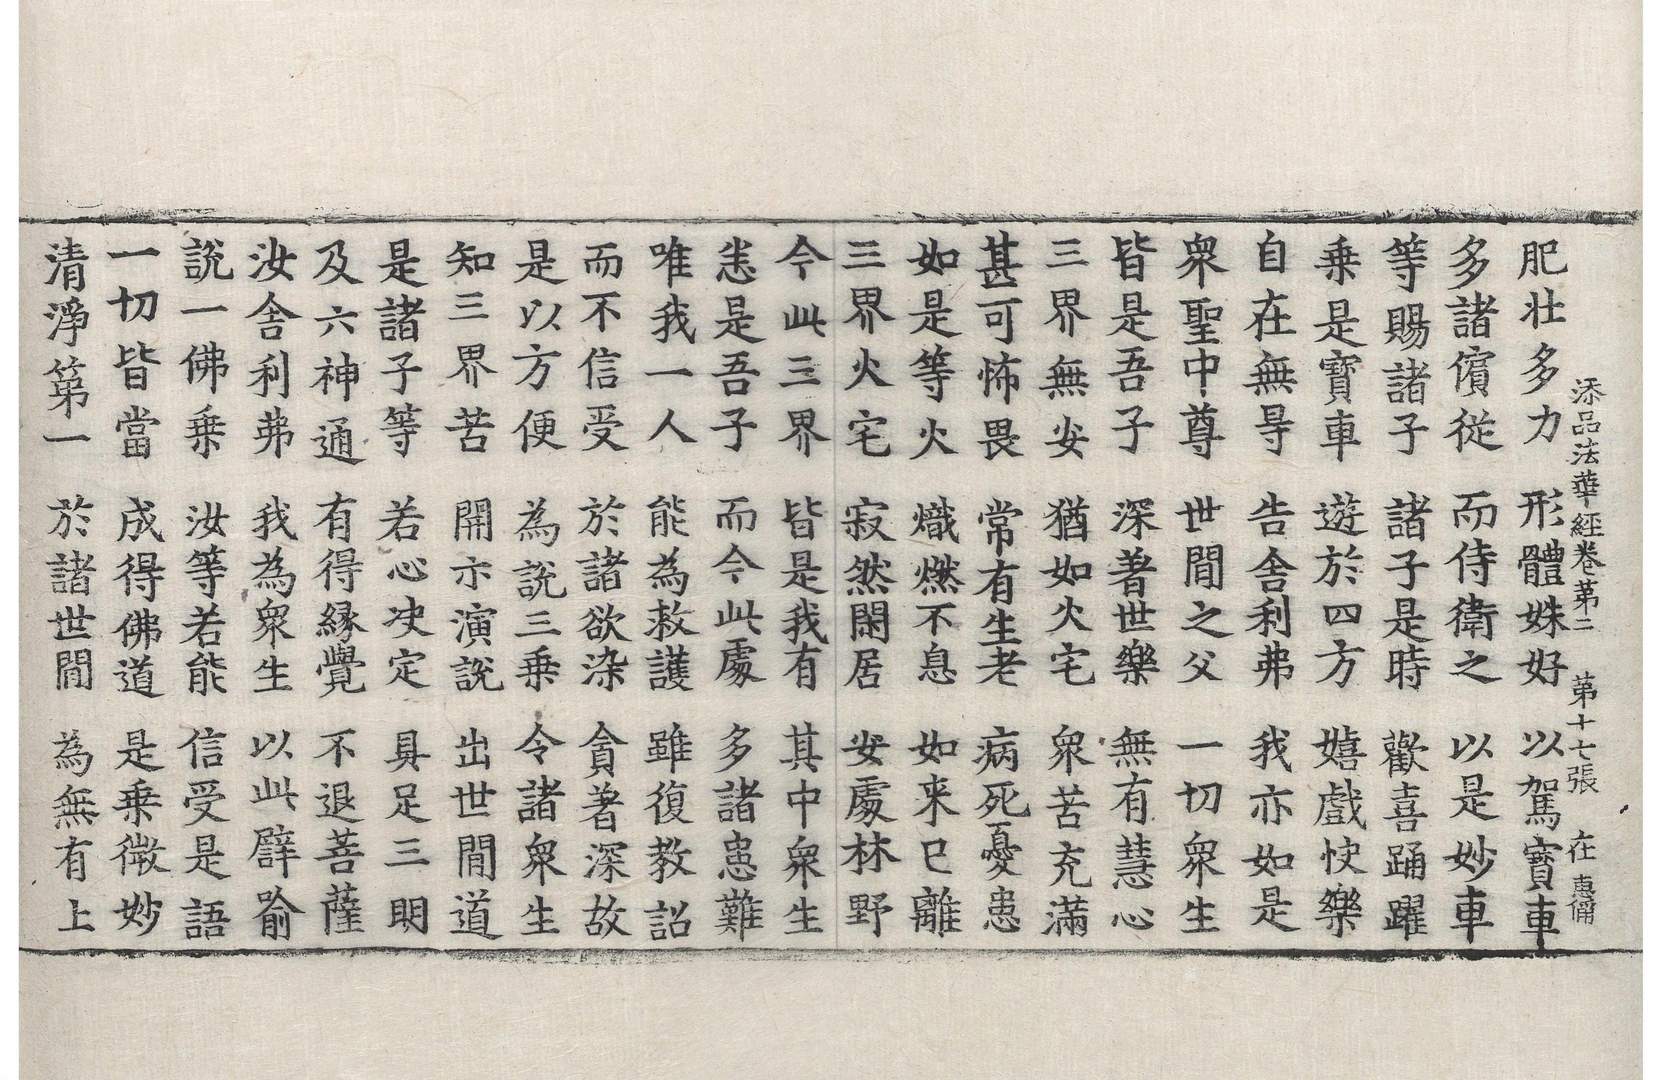 添品法華經卷苐二 苐十七張 在 惠俻
肥壯多力 形體姝好 以駕寶車
多諸儐從 而侍衛之 以是妙車
等賜諸子 諸子是時 歡喜踊躍
乗是寶車 遊於四方 嬉戲快樂
自在無㝵 告舎利弗 我亦如是
衆聖中尊 世間之父 一切衆生
皆是吾子 深著世樂 無有慧心
三界無安 猶如火宅 衆苦充滿
甚可怖畏 常有生老 病死憂患
如是等火 熾燃不息 如来已離
三界火宅 寂然閑居 安處林野
今此三界 皆是我有 其中衆生
悉是吾子 而今此處 多諸患難
唯我一人 能為救護 雖復教詔
而不信受 於諸欲染 貪著深故
是以方便 為説三乗 令諸衆生
知三界苦 開示演説 出世間道
是諸子等 若心决定 具足三明
及六神通 有得縁覺 不退菩薩
汝舎利弗 我為衆生 以此譬喻
説一佛乗 汝等若能 信受是語
一切皆當 成得佛道 是乗微妙
清淨第一 於諸世間 為無有上